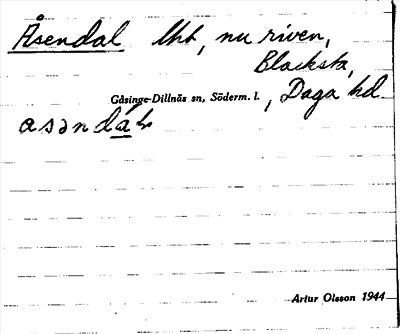 Åsendal lht, nu riven,
Blacksta,
Gåsinge-Dillnäs sn, Söderm. l., Daga hd.
asəndαh
Artur Olsson 1944